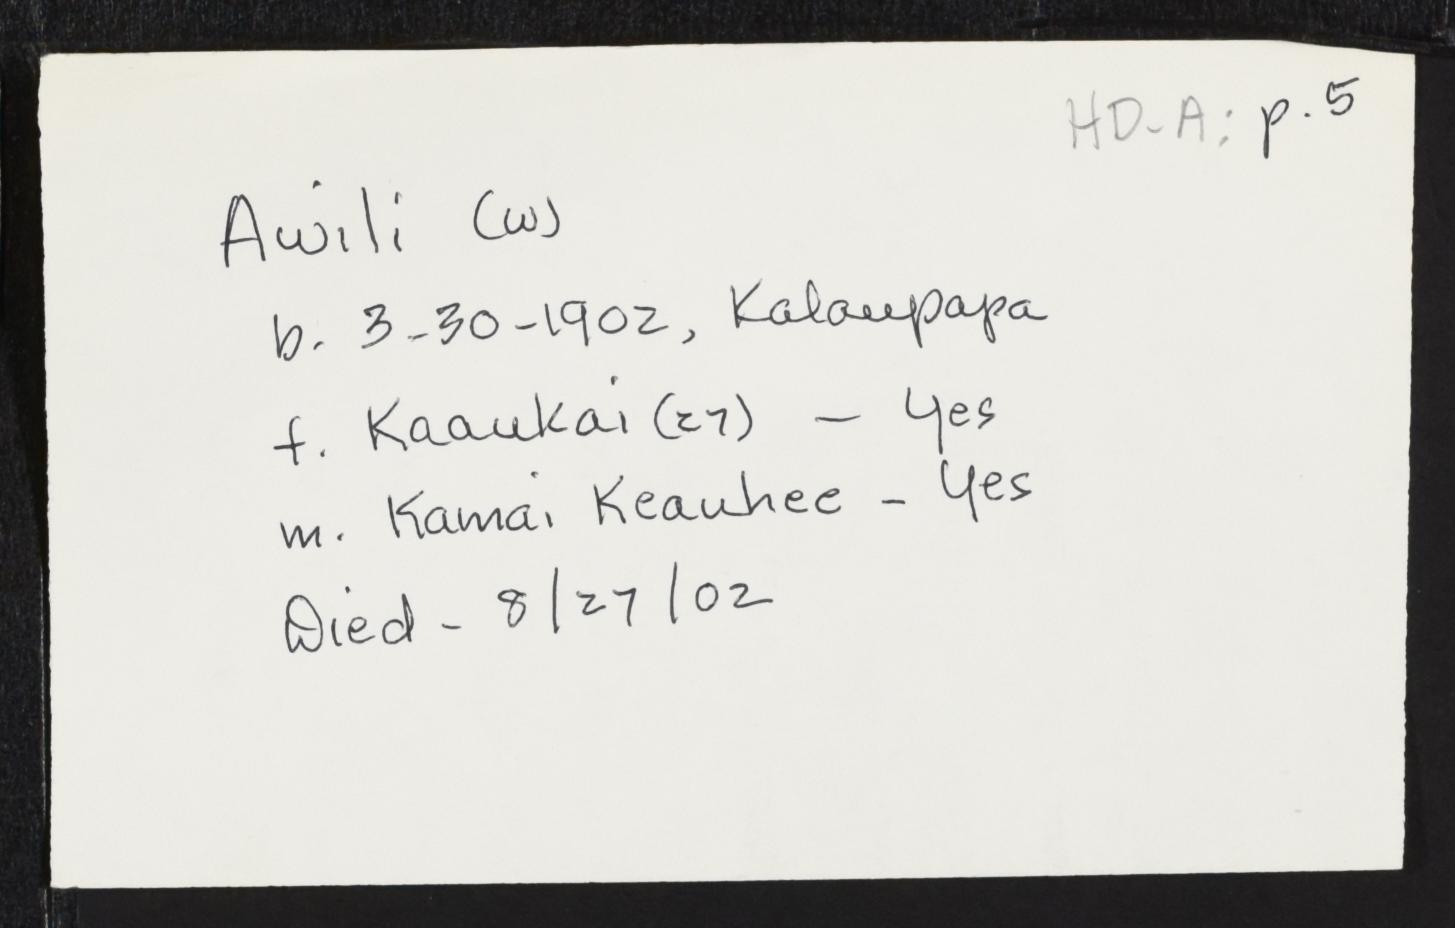 HD-A: p. 5
Awili (w)
b. 3-30-1902, Kalaupapa
f. Kaaukai (27) - Yes
m. Kamai Keauhee - Yes
Died - 8/27/02